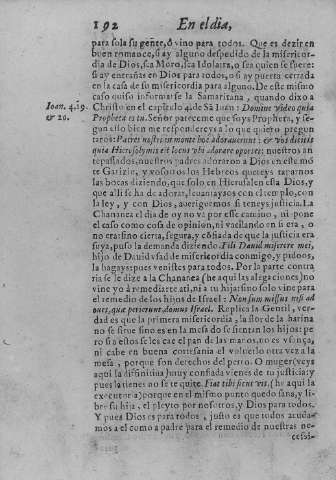 192 En el dia,
para sola su gẽte, ò vino para todos. Que es dezir en
buen romance, si ay alguno despedido de la misericor-
dia de Dios, sea Moro, sea Idolatra, o sea quien se fuere:
si ay entrañas en Dios para todos, o si ay puerta cerrada
en la casa de su misericordia para alguno. De este mismo
caso quiso informarse la Samaritana, quando dixo a
Ioan. 4. 19. Christo en el capitulo 4. de Sã Iuan: Domine video quia
& 20. Propheta es tu. Señor pareceme que soys Propheta, y se-
gun esso bien me respondereys a lo que quiero pregun
taros: Patres nostri in monte hoc adorauerunt: & vos dicitis
quia Hierosolymis est locus vbi adorare oportet: nuestros an
tepassados, nuestros padres adoraron a Dios en este mõ
te Garizin, y vosotros los Hebreos quereys taparnos
las bocas diziendo, que solo en Hierusalen està Dios, y
que alli se ha de adorar, leuantaysos con el templo, con
la ley, y con Dios, aueriguemos si teneys justicia. La
Chananea el dia de oy no va por esse camino, ni pone
el caso como cosa de opinion, ni vacilando en si era, o
no era: sino cierta, segura, y cõfiada de que la justicia era
suya, puso la demanda diziendo: Fili Dauid miserere mei,
hijo de Dauid vsad de misericordia conmigo, y pidoos,
la hagays: pues venistes para todos. Por la parte contra
ria se le dize a la Chananea (he aqui las alegaciones) no
vine yo à remediarte a ti, ni a tu hija: sino solo vine para
el remedio de los hijos de Israel: Non sum missus nisi ad
oues, quæ perierunt domus Israel. Replica la Gentil, ver-
dad es que la primera misericordia, la flor de la harina
no se sirue sino es en la mesa do se sientan los hijos: pe-
ro si a estos se les cae el pan de las manos, no es vsança,
ni cabe en buena cortesania el voluerlo otra vez a la
mesa, porque son derechos del perro. O muger (veys
aqui la difinitiua) muy confiada vienes de tu justicia: y
pues la tienes no se te quite. Fiat tibi sicut vis, (he aqui la
executoria) porque en el mismo punto quedo sana, y li-
bre su hija, el pleyto por nosotros, y Dios para todos.
Y pues Dios es para todos, justo es que todos acuda-
mos a el como a padre para el remedio de nuestras ne-
cessi-